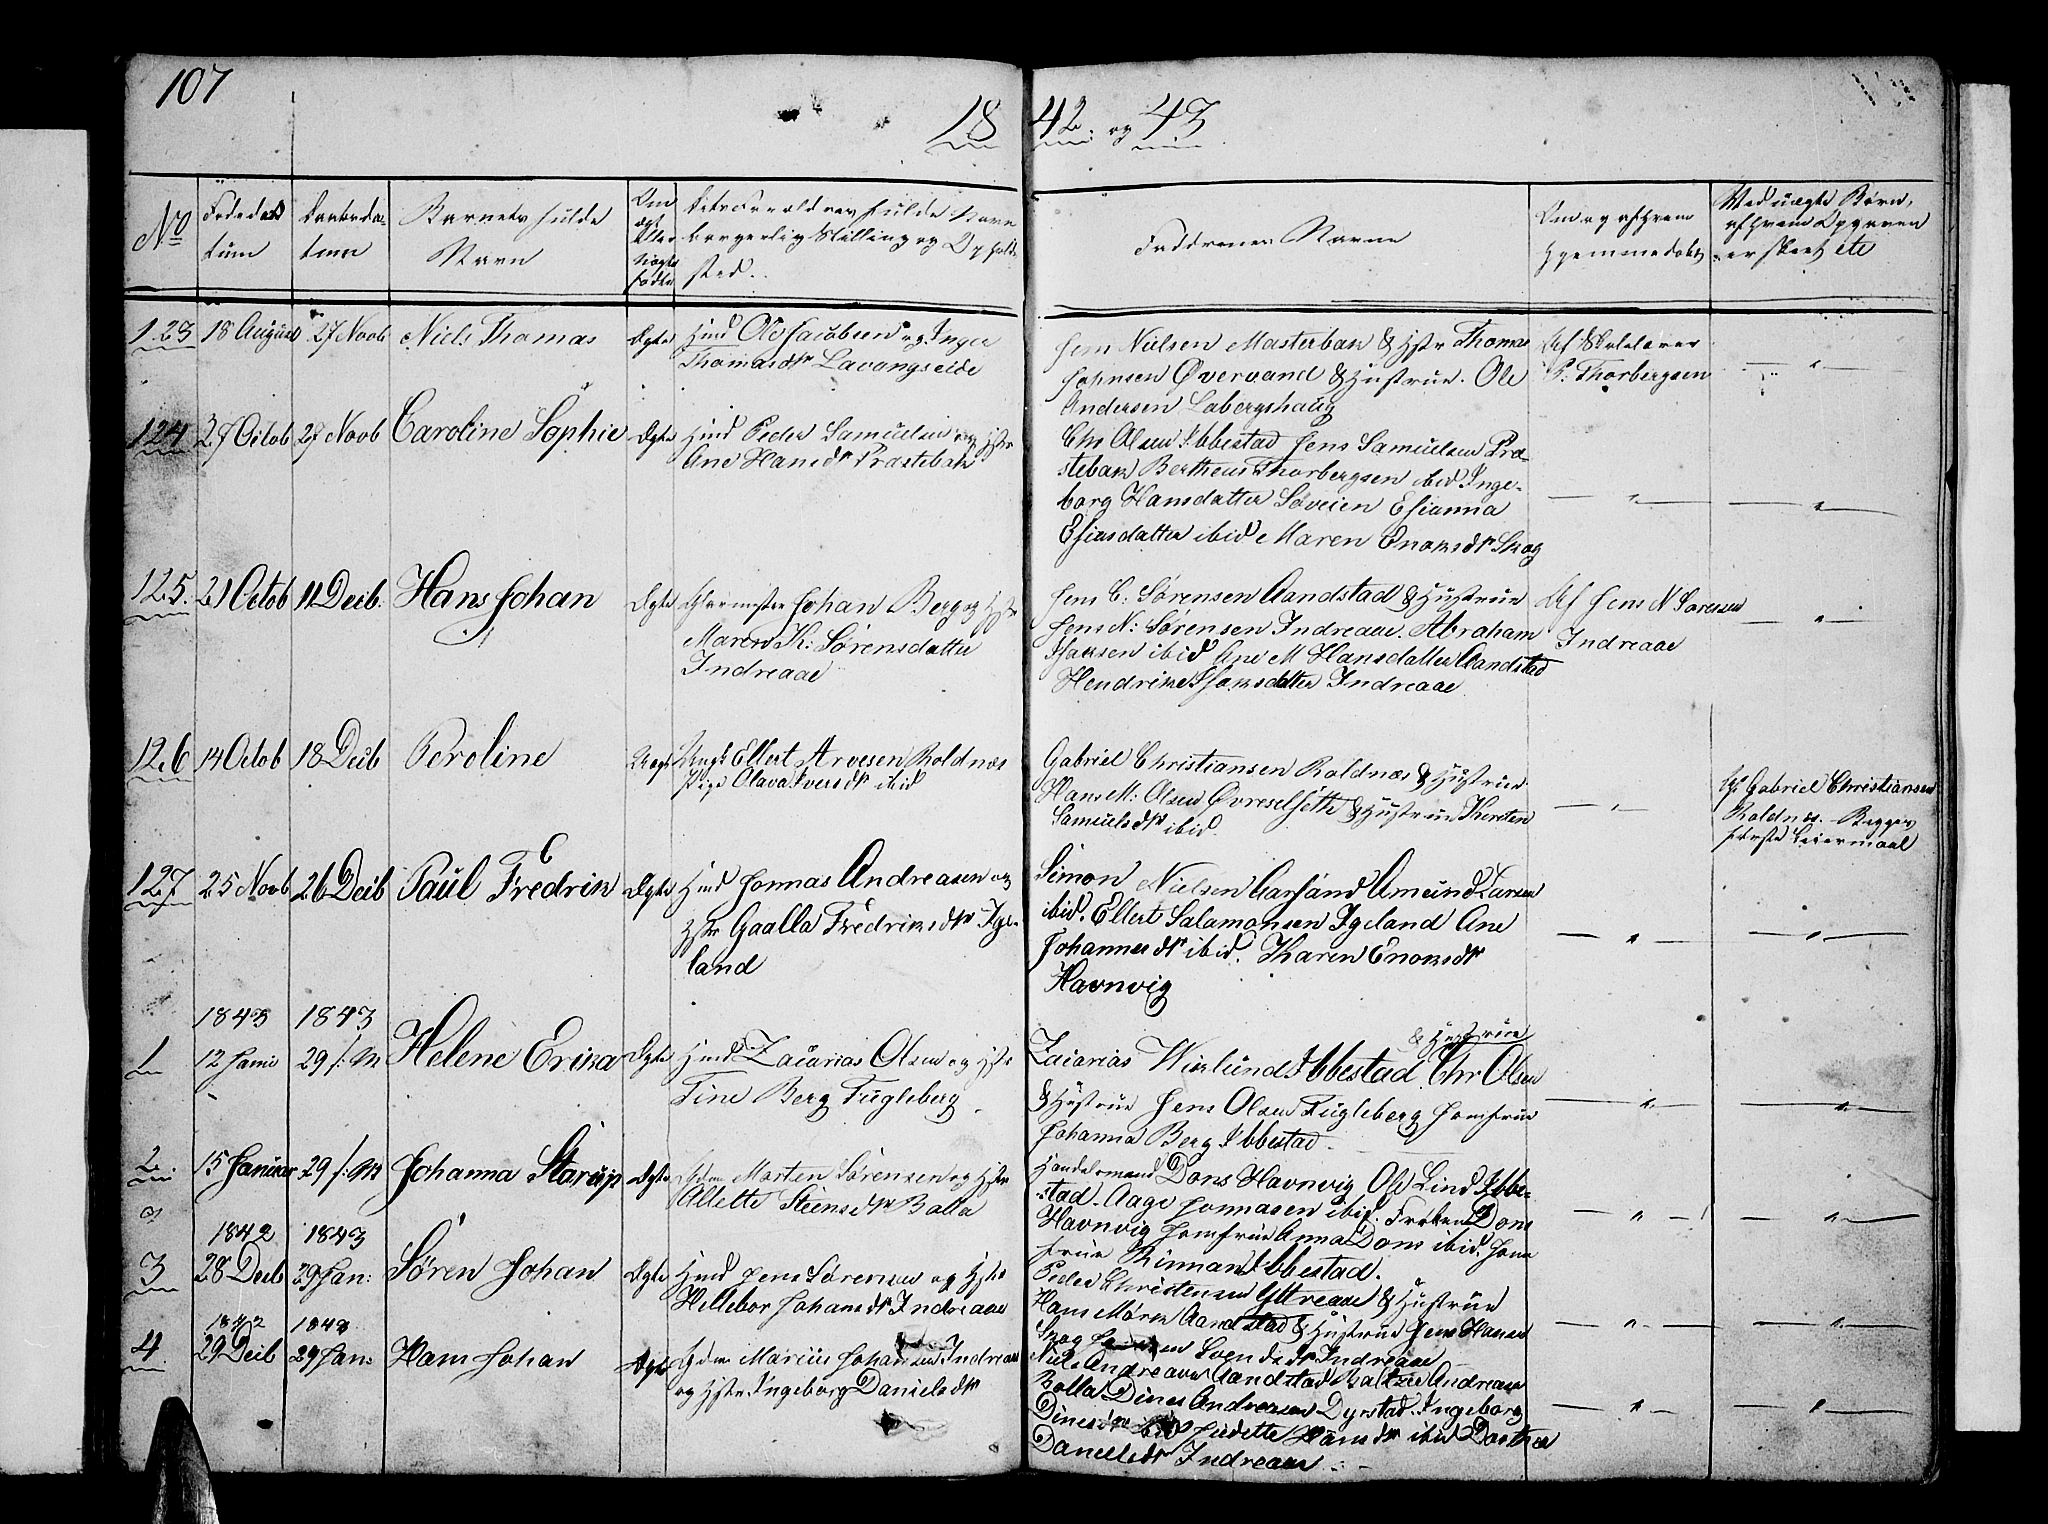 107
1842 og 43
No
Fødeda
tum
Daabsda
tum
Barnets fulde
Navn
Om
ægte
eller
uægte
føden
Forældres fulde Navn
borgerlig Stilling og Opholds
sted.
Faddernes Navne
Om og af hvem
Hjemmedøbt
Ved uægte Børn,
af hvem Opgaven
er skeet etc
123 18 August 27 Novb Niels Thomas Ægte Hmd Ole Jacobsen og Inger
Thomasdtr Lavangseide
Jens Nielsen Masterbak & Hstr Thomas
Johnsen Øvervand & Hustrue. Ole
Andersen Labergshaug
Af Skolelærer
P. Thorbergsen
124 27 Octob 27 Novb Caroline Sophie Ægte Hmd Peder Samuelsen og Hstr
Ane Hansdtr Præstebak
Chr Olsen Ibbestad Jens Samuelsen Præ-
stebak Bertheus Thorbergsen ibid Inge-
borg Hansdatter Søveien Esianna
Esiasdatter ibid Maren Enoksdtr Skog
125. 21 Octob 11 Decb. Hans Johan Ægte Johan Berg og Hstr
Maren K: Sørensdatter
Indreaae
Jens C: Sørensen Aandstad & Hustrue
Jens N: Sørensen Indreaae. Abraham
Isaksen ibid Ane M Hansdatter Aandstad
Hendrikke Isaksdatter Indreaae
Af Jens N Sørensen
Indreaae
126 14 Octob 18 Decb Peroline Uægte Ungk Ellert Arvesen Roldnæs
Pige Olava Iversdtr ibid
Gabriel Christiansen Roldnæs & Hustrue
Hans M: Olsen Øvreselseth & Hustrue Kirsten
Samuelsdtr ibid.
Gabriel Christiansen
Roldnæs. Begges
første Leiermaal
127 25 Novb 26 Decb Paul Fredrik Ægte Hmd Jonnas Andreasen og
Hstr Gaalla Fredriksdtr Ige-
land
Simon Nielsen Aarsand Amund Larsen
ibid. Ellert Salamonsen Igeland Ane
Johannesdtr ibid. Karen Enoksdtr
Havnvig
1843 1843
1 12 Janu 29 /: M Helene Erika Ægte Hmd Zacarias Olsen og Hstr
Tine Berg Fugleberg
& Hustrue
Zacarias Wiklund Ibbestad. Chr Olsen
& Hustrue Jens Olsen Fugleberg Jomfrue
Johanna Berg Ibbestad
2. 15 Januar 29 /: M Johanna Starup Ægte Morten Sørensen og Hstr
Allette Steensdtr Bolla
Handelsmand Dons Havnvig Ole Lind Ibbe-
stad. Aage Jonnasen ibid. Frøken Dons
Havnvig Jomfrue Anna Dons ibid. Jom
frue Kinman Ibbestad.
1842 1843
3 28 Decb 29 Jan: Sören Johan Ægte Hmd Jens Sørensen og Hstr
Hellebor Johansdtr Indreaae
Peder Christensen Yttreaae & Hustrue
Hans Mørk Aandstad & Hustrue Jens Hansen
Skog Svendsdtr Indreaae
1842 1843
4. 29 Decb 29 Jan: Hans Johan Ægte Marcus Johansen Indreaae
og Hstr Ingeborg Danielsdtr
Niels Andreasen Aandstad Baltzer Andreasen
Bolla Dines Andreasen Dyrstad. Ingeborg
ibid Hansdtr ibid Dorthea
Danielsdtr Indreaae